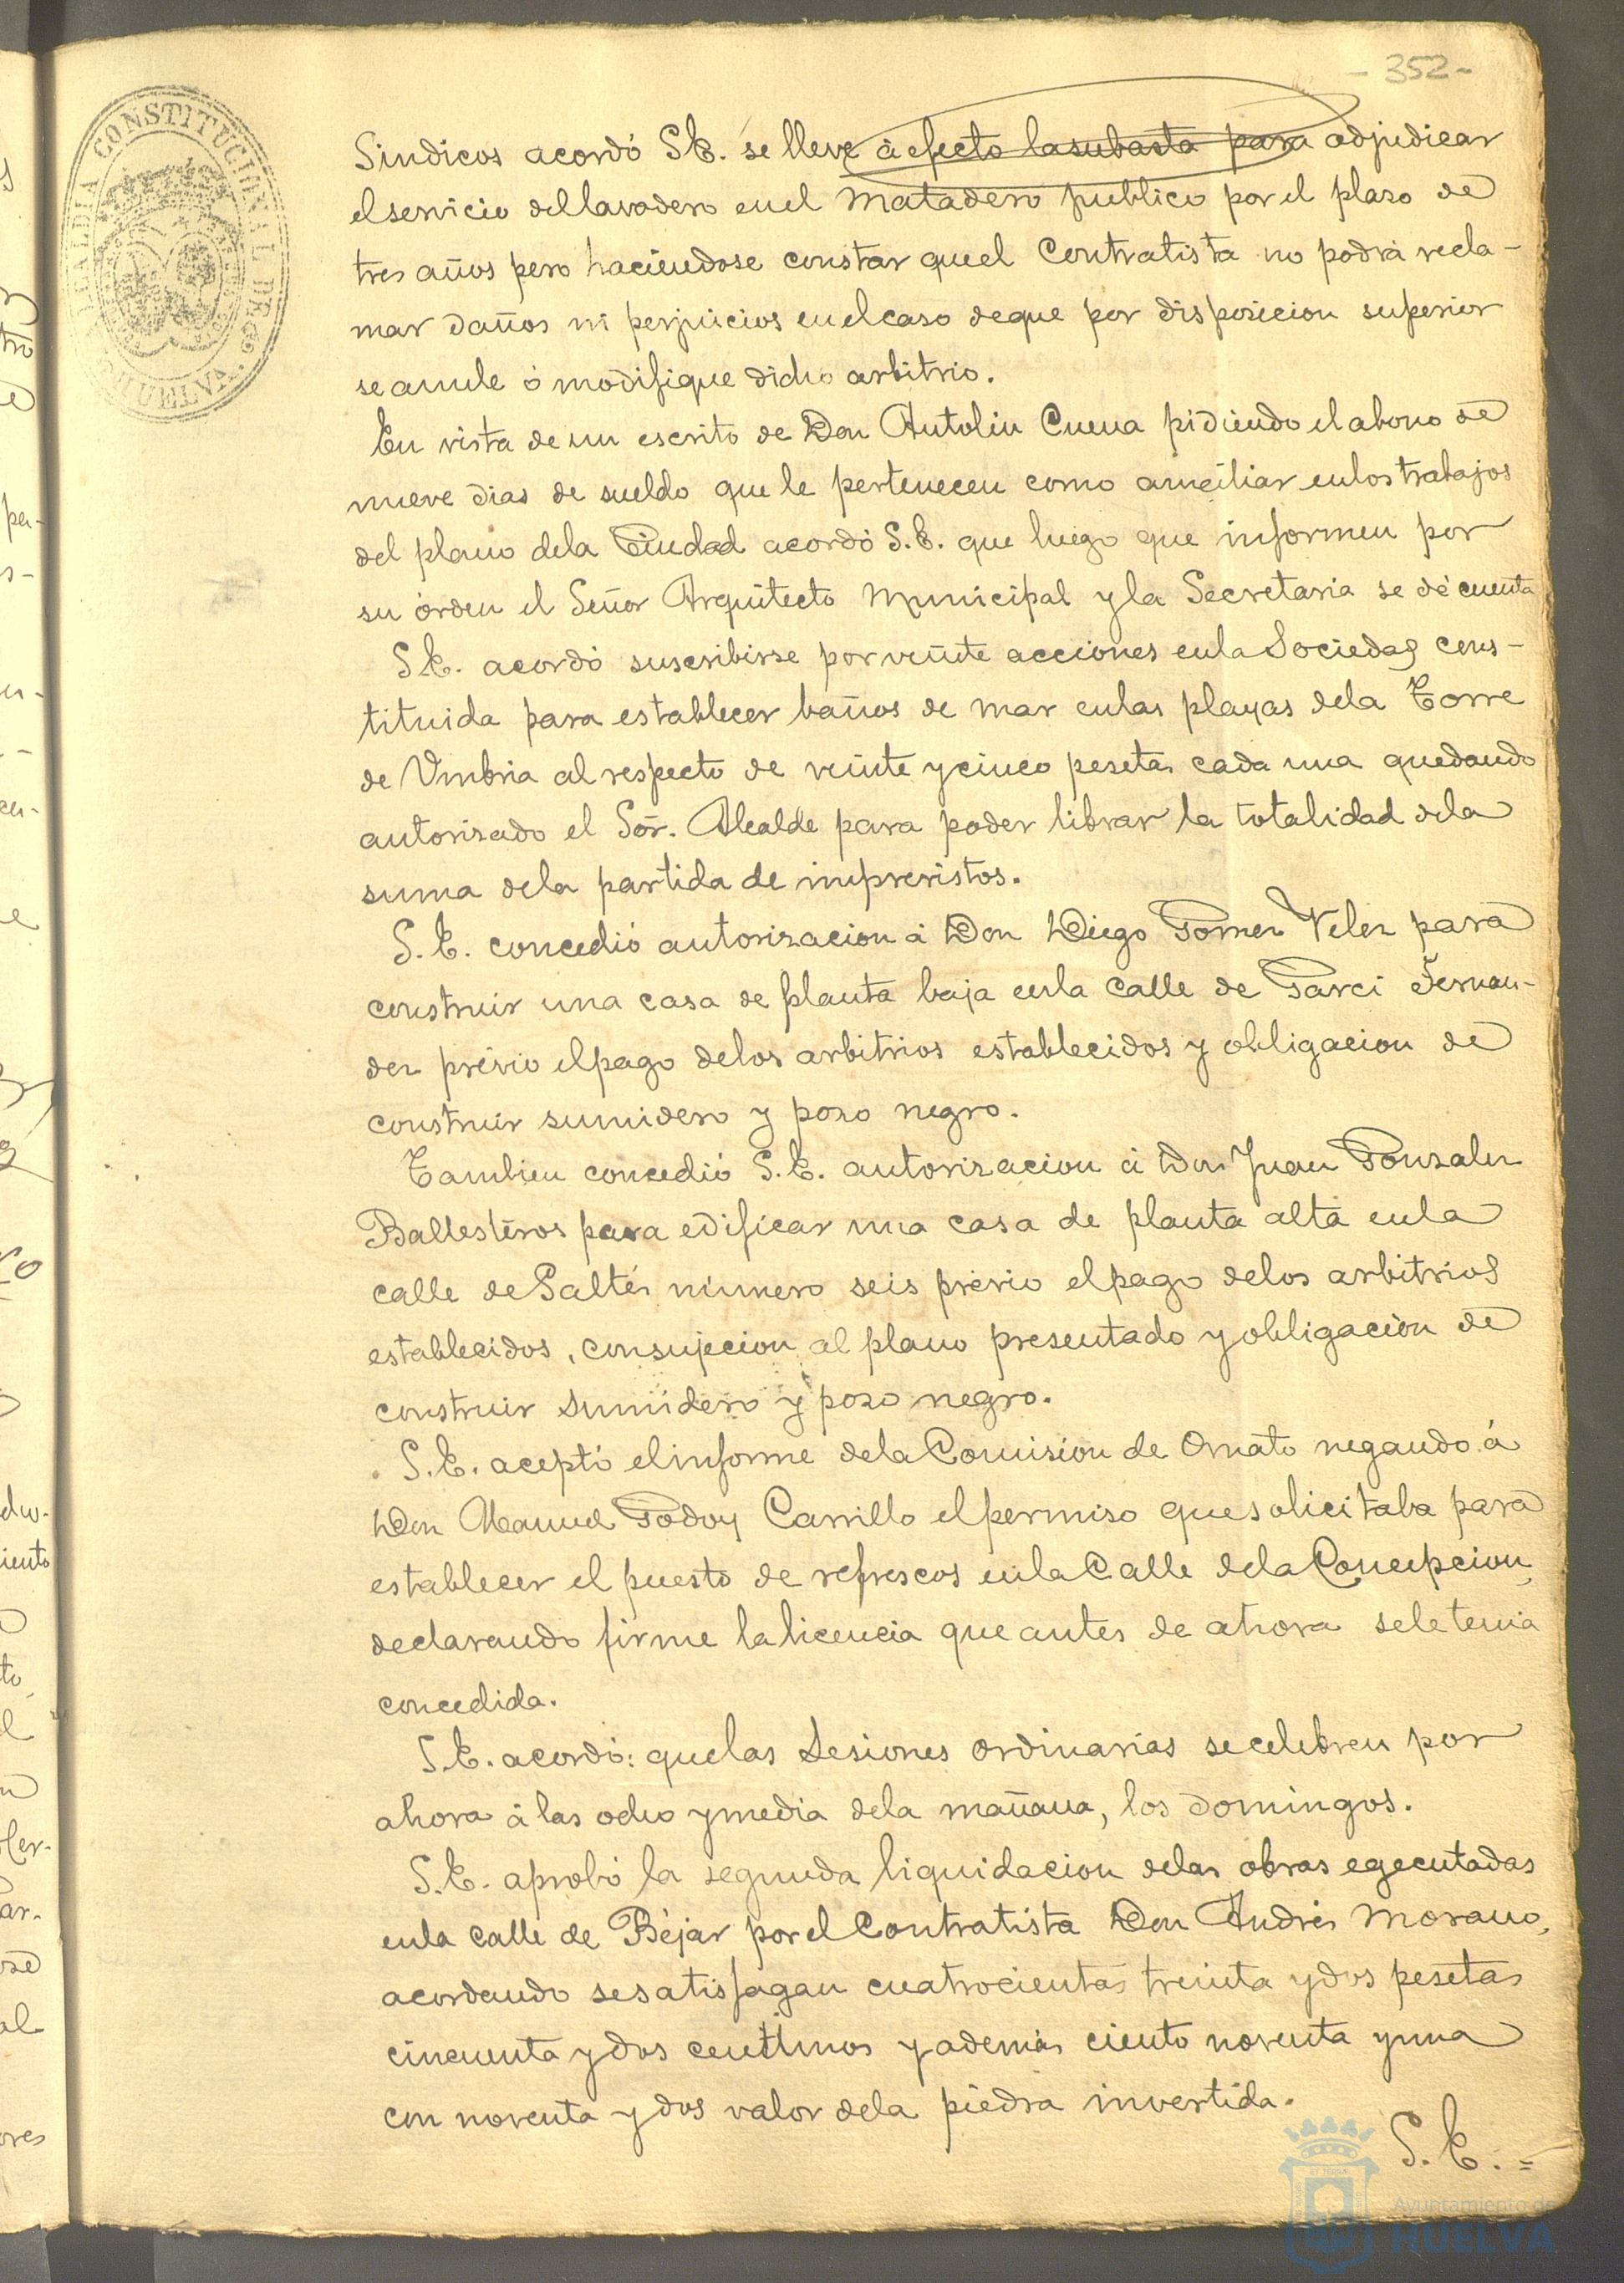 - 352 -
ALCALDIA CONSTITUCIONAL DE
HUELVA.
Sindicos acordó S.E. se lleve á efecto la subasta para adjudicar
el servicio del lavadero en el Matadero publico por el plazo de
tres años pero haciendose constar que el Contratista no podrá recla-
mar daños ni perjuicios en el caso de que por disposicion superior
se anule ó modifique dicho arbitrio.
En vista de un escrito de Don Antolin Cueva pidiendo el abono de
nueve dias de sueldo que le pertenecen como auxiliar en los trabajos
del plano de la Ciudad acordó S.E. que luego que informen por
su órden el Señor Arquitecto Municipal y la Secretaria se dé cuenta
S.E. acordó suscribirse por veinte acciones en la Sociedad cons-
tituida para establecer baños de mar en las playas de la Torre
de Umbria al respecto de veinte y cinco pesetas cada una quedando
autorizado el Sór. Alcalde para poder librar la totalidad de la
suma de la partida de imprevistos.
S.E. concedió autorizacion á Don Diego Gomez Velez para
construir una casa de planta baja en la calle de Garci Fernan-
dez prévio el pago de los arbitrios establecidos y obligacion de
construir sumidero y pozo negro.
Tambien concedió S.E. autorizacion á Don Juan Gonzalez
Ballesteros para edificar una casa de planta alta en la
calle de Saltés número seis prévio el pago de los arbitrios
establecidos, con sujecion al plano presentado y obligacion de
construir sumidero y pozo negro.
S.E. aceptó el informe de la Comision de Ornato negando á
Don Manuel Godoy Carrillo el permiso que solicitaba para
establecer el puesto de refrescos en la Calle de la Concepcion,
declarando firme la licencia que antes de ahora se le tenia
concedida.
S.E. acordó: que las Sesiones ordinarias se celebren por
ahora á las ocho y media de la mañana, los domingos.
S.E. aprobó la segunda liquidacion de las obras egecutadas
en la calle de Béjar por el Contratista Don Andrés Morano,
acordando se satisfagan cuatrocientas treinta y dos pesetas
cincuenta y dos centimos y además ciento noventa y una
con noventa y dos valor de la piedra invertida.
S.E. =
Ayuntamiento de
HUELVA